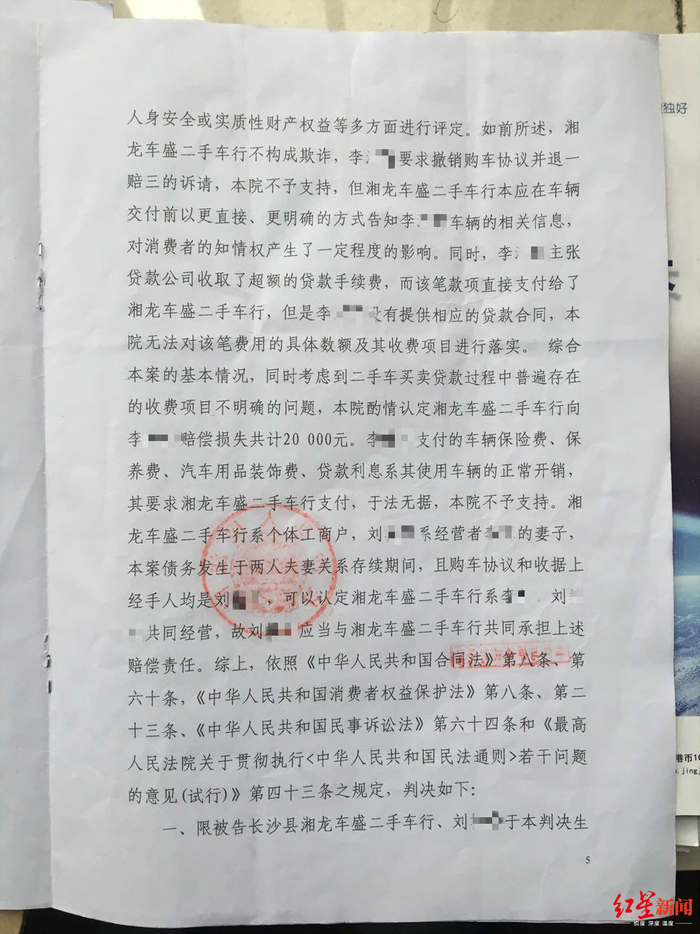 人身安全或实质性财产权益等多方面进行评定。如前所述，湘
龙车盛二手车行不构成欺诈，李 要求撤销购车协议并退一
赔三的诉请，本院不予支持，但湘龙车盛二手车行本应在车辆
交付前以更直接、更明确的方式告知李 车辆的相关信息，
对消费者的知情权产生了一定程度的影响。同时，李 主张
贷款公司收取了超额的贷款手续费，而该笔款项直接支付给了
湘龙车盛二手车行，但是李 没有提供相应的贷款合同，本
院无法对该笔费用的具体数额及其收费项目进行落实。 综合
本案的基本情况，同时考虑到二手车买卖贷款过程中普遍存在
的收费项目不明确的问题，本院酌情认定湘龙车盛二手车行向
李 赔偿损失共计20 000元。李 支付的车辆保险费、保
养费、汽车用品装饰费、贷款利息系其使用车辆的正常开销，
其要求湘龙车盛二手车行支付，于法无据，本院不予支持。湘
龙车盛二手车行系个体工商户，刘 系经营者 的妻子，
本案债务发生于两人夫妻关系存续期间，且购车协议和收据上
经手人均是刘 ，可以认定湘龙车盛二手车行系李 、刘
共同经营，故刘 应当与湘龙车盛二手车行共同承担上述
赔偿责任。综上，依照《中华人民共和国合同法》第八条、第
六十条，《中华人民共和国消费者权益保护法》第八条、第二
十三条、《中华人民共和国民事诉讼法》第六十四条和《最高
人民法院关于贯彻执行<中华人民共和国民法通则>若干问题
的意见(试行)》第四十三条之规定，判决如下：
一、限被告长沙县湘龙车盛二手车行、刘 于本判决生
5
独好
港币10
w.jing
红星新闻
锐度 深度 温度